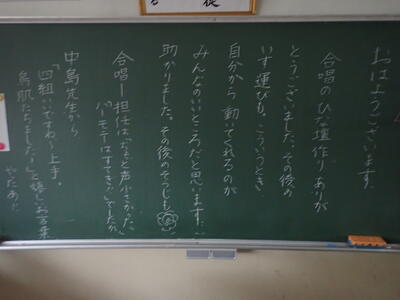 おはようございます
合唱のひな壇作りありが
とうございました。その後の
いす運びも。こういうとき、
自分から動いてくれるのが
みんなのいいところだと思います。
助かりました。その後のそうじも
合唱ー担任はちょっと声小さかった
ハーモニーはすてき!でしたが、
中島先生から
「四組いいですね〜上手。
鳥肌たちました!」と嬉しいお言葉
やったね!!